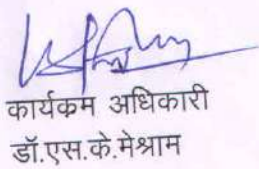 कार्यक्रम अधिकारी
डॉ.एस.के.मेश्राम